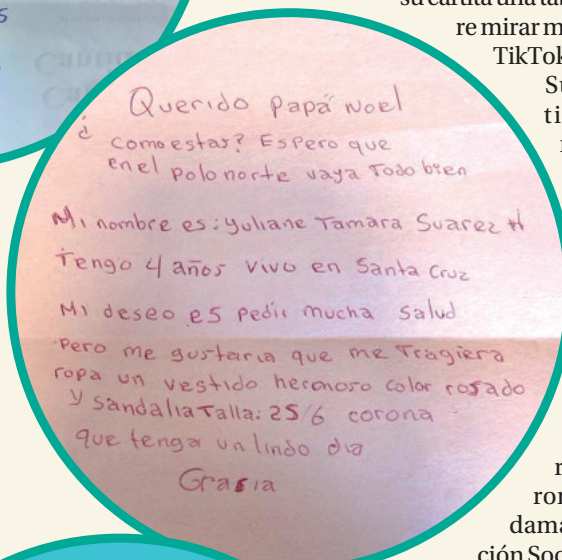 s
su cartita una tab
re mirar m
TikTok
Su
ti
Querido papá noel
¿ como estas? Espero que
en el polo norte vaya Todo bien
Mi nombre es: yuliane Tamara Suarez H
Tengo 4 años vivo en Santa Cruz
Mi deseo es pedir mucha salud
Pero me gustaria que me Tragiera
ropa un vestido hermoso color rosado
y sandalia Talla: 25/6 corona
que tenga un lindo dia
Gracia
r
ror
dama
ción Soc